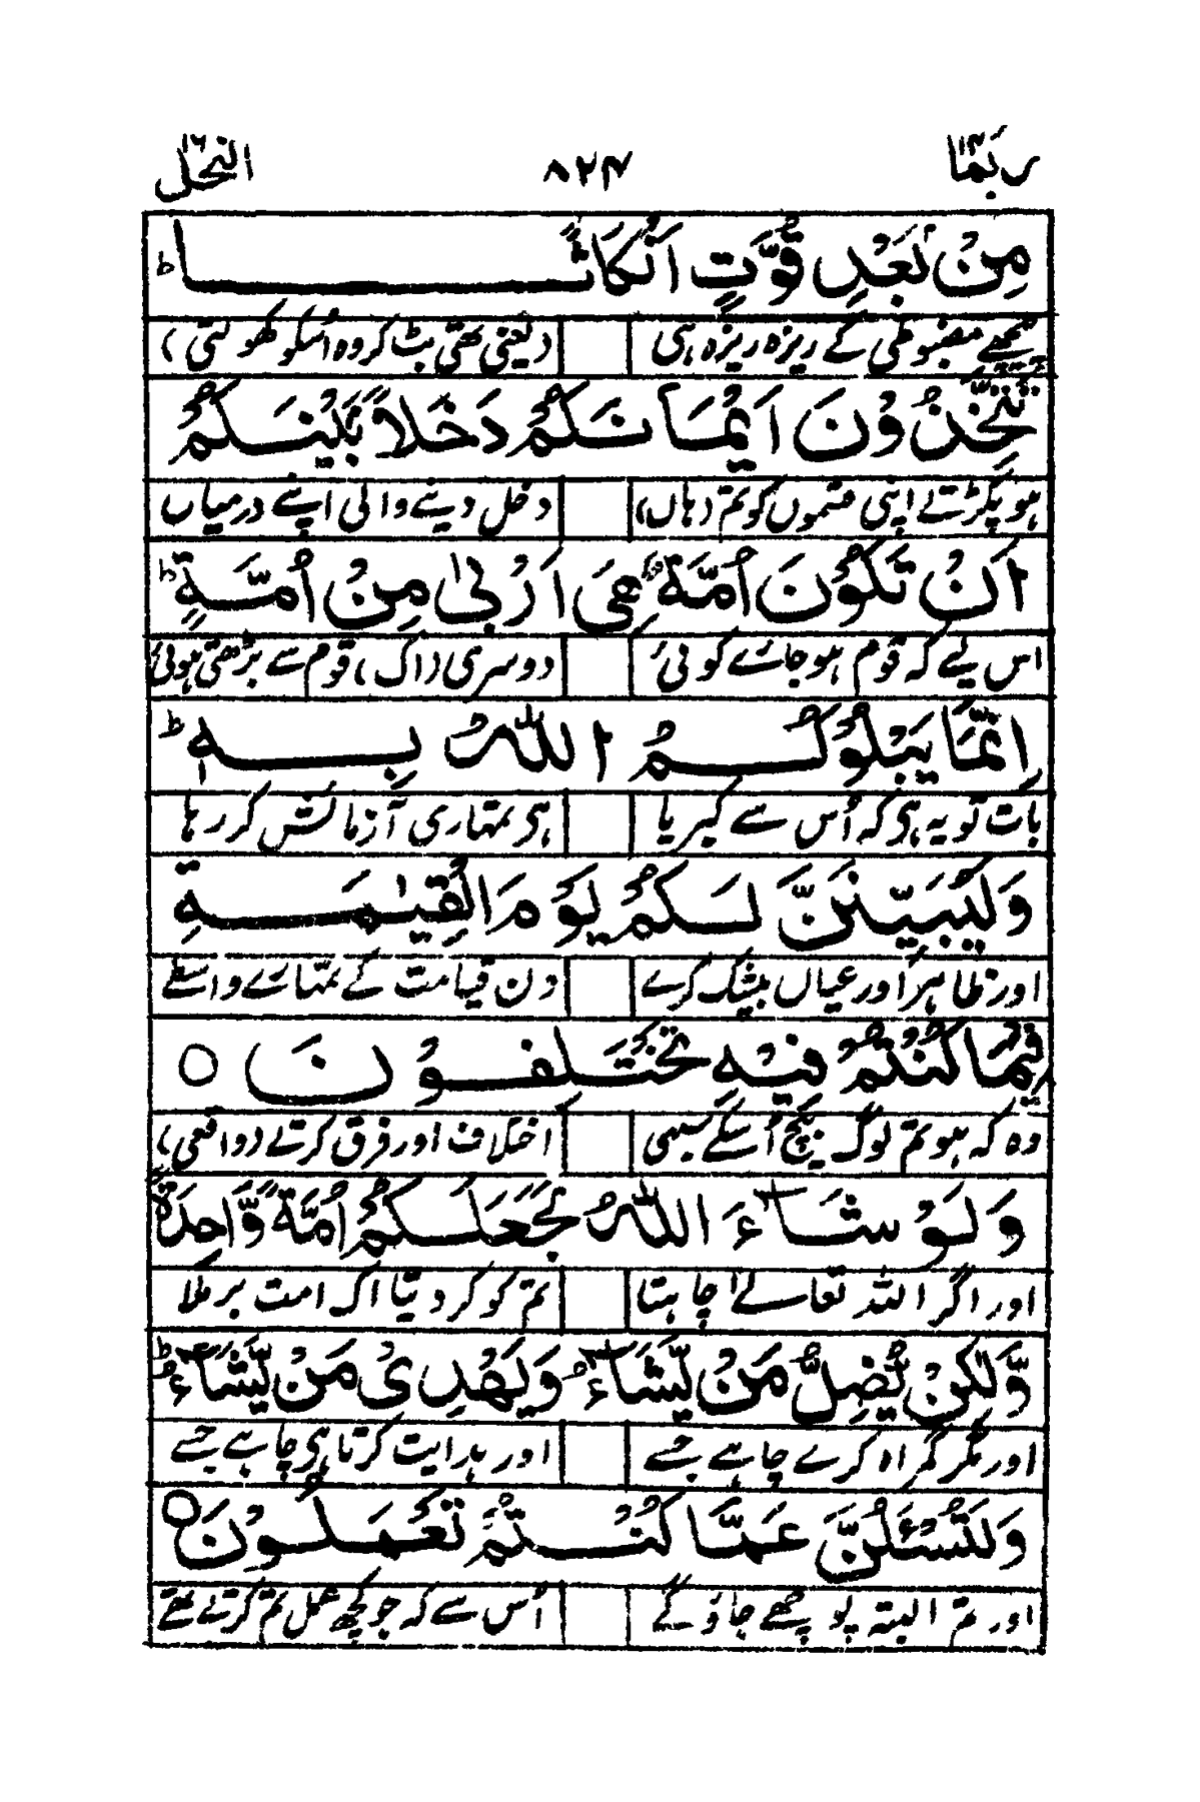 ربما ۱۴ ۸۲۴ النحل ۱۶
مِنْۢ بَعْدِ قُوَّةٍ اَنْكَاثًا ؕ
پیچھے مضبوطی کے ریزہ ریزہ ہی (یعنی تھی بٹ کر وہ اُسکو کھولتی)
تَتَّخِذُوْنَ اَيْمَانَكُمْ دَخَلًاۢ بَيْنَكُمْ
ہو پکڑتے اپنی قسموں کو تم (ہاں) دخل دینے والی اپنے درمیاں
اَنْ تَكُوْنَ اُمَّةٌ هِيَ اَرْبٰى مِنْ اُمَّةٍ ؕ
اس لیے کہ قوم ہو جائے کوئی دوسری (اک) قوم سے بڑھتی ہوئی
اِنَّمَا يَبْلُوْكُمُ اللّٰهُ بِهٖ ؕ
بات تو یہ ہی کہ اُس سے کبریا ہی تمہاری آزمائش کر رہا
وَلَيُبَيِّنَنَّ لَكُمْ يَوْمَ الْقِيٰمَةِ
اور ظاہر اور عیاں بیشک کرے دن قیامت کے تمہارے واسطے
فِيْمَا كُنْتُمْ فِيْهِ تَخْتَلِفُوْنَ ○
وہ کہ ہو تم لوگ بیچ اُسکے سبھی اختلاف اور فرق کرتے (واقعی)
وَلَوْ شَآءَ اللّٰهُ لَجَعَلَكُمْ اُمَّةً وَّاحِدَةً
اور اگر اللہ تعالےٰ چاہتا تم کو کر دیتا اک امت برملا
وَّلٰكِنْ يُّضِلُّ مَنْ يَّشَآءُ وَيَهْدِيْ مَنْ يَّشَآءُ ؕ
اور مگر گمراہ کرے چاہے جسے اور ہدایت کرتا ہی چاہے جسے
وَلَتُسْـَٔلُنَّ عَمَّا كُنْتُمْ تَعْمَلُوْنَ ○
اور تم البتہ پوچھے جاؤ گے اُس سے کہ جو کچھ عمل تم کرتے تھے